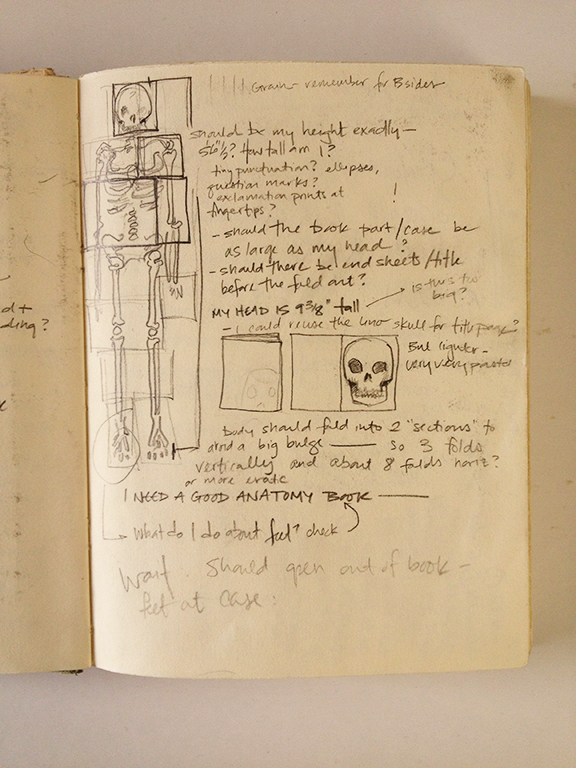 d +
ding?
Grain - remember for B sides
should be my height exactly -
5'6"½? How tall am I?
tiny punctuation? ellipses,
question marks?
exclamation points at !
fingertips?
- should the book part/case be
as large as my head?
- should there be end sheets/title
before the fold out?
MY HEAD IS 9 3/8" tall
is this too
big?
- I could reuse the lino skull for title page?
But lighter -
very very
Body should fold into 2 "sections" to
avoid a big bulge — so 3 folds
vertically and about 8 folds horiz?
or more erratic
I NEED A GOOD ANATOMY BOOK —
What do I do about feet? check
Wait. Should open out of book -
feet at case.